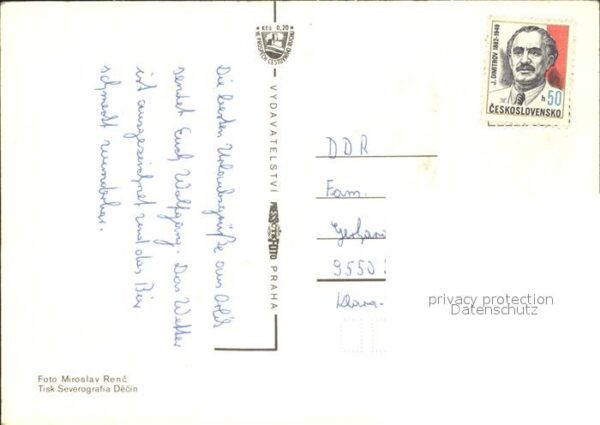 Die besten Urlaubsgrüße aus
sendet Euch Wolfgang. Das Wetter
ist ausgezeichnet und das Bier
schmeckt wunderbar.
KČS 0,20
VYDAVATELSTVÍ
PRAHA
J. DIMITROV 1882-1949
h 50
ČESKOSLOVENSKO
DDR
Fam.
9550
Klara-
privacy protection
Datenschutz
Foto Miroslav Renč
Tisk Severografia Děčín